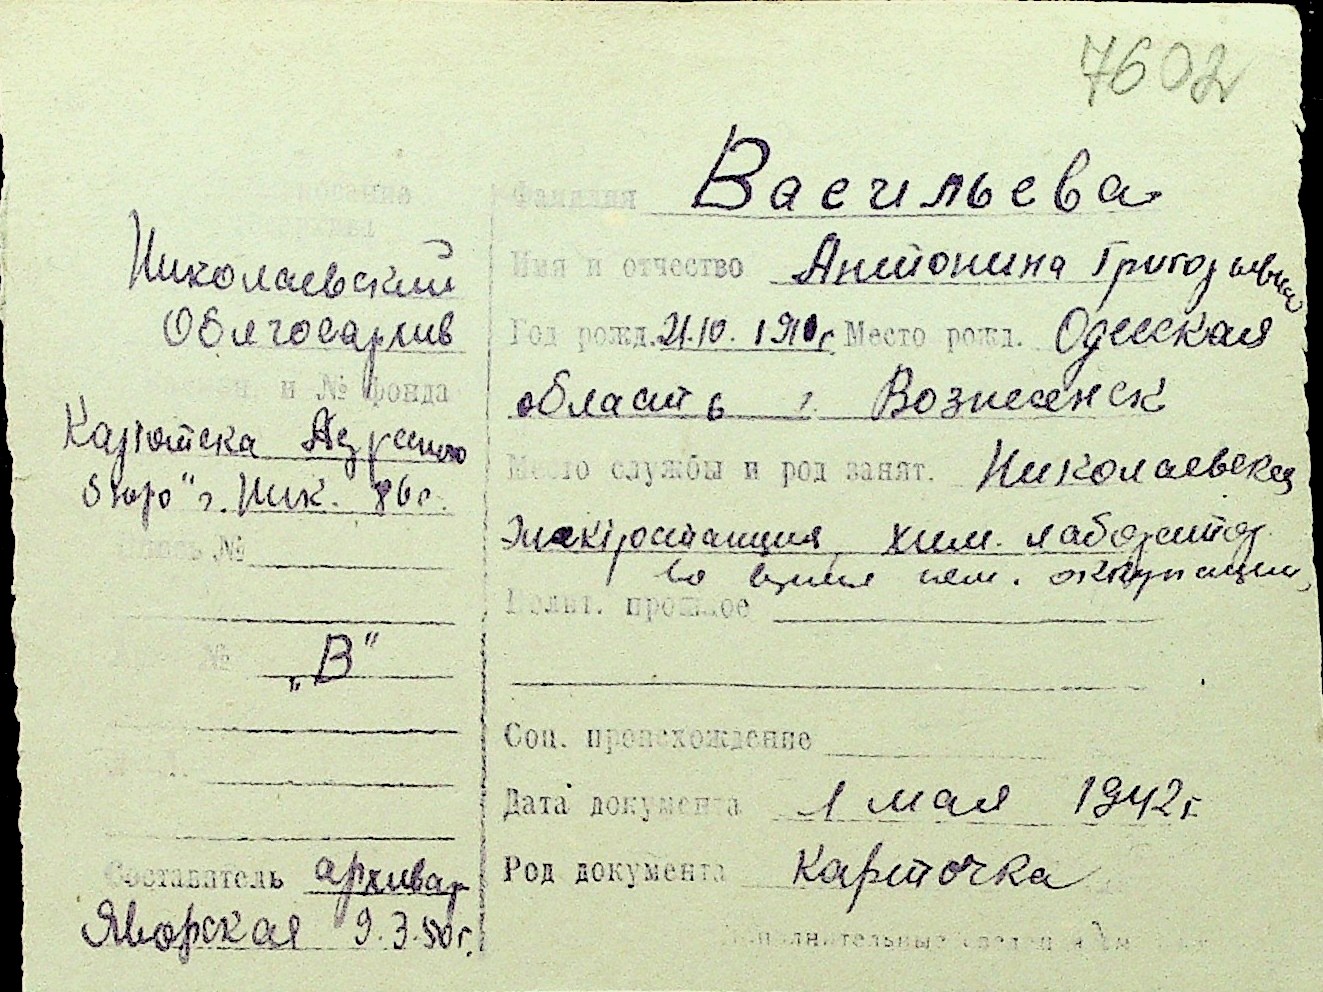 7602
Фамилия Васильева
Имя и отчество Антонина Григорьевна
Год рожд. 21.10. 1910г. Место рожд. Одесская
область г. Вознесенск
Место службы и род занят. Николаевская
Электростанция, хим. лаборатор.
во время нем. оккупации,
Полит. прошлое
Соц. происхождение
Дата документа 1 мая 1942 г.
Род документа Карточка
Дополнительные сведения
Николаевский
Облгосархив
и № фонда
Картотека Адресного
бюро" г. Ник.
Опись №
№ „В"
Составитель архивар
Яворская 9.3.50г.